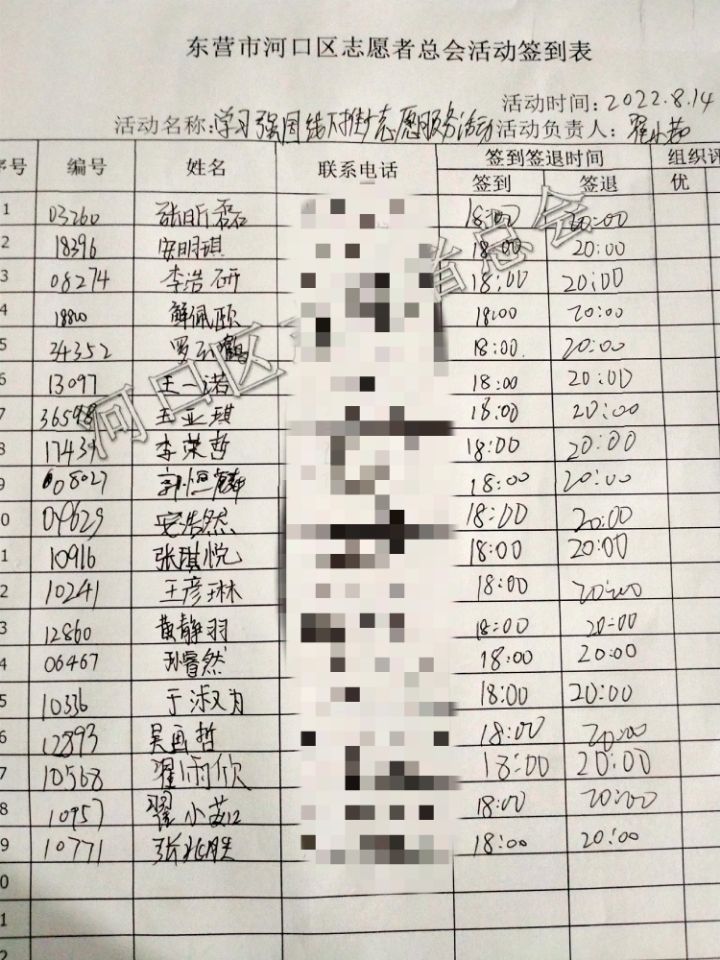 东营市河口区志愿者总会活动签到表
活动时间：2022.8.14
活动名称：学习强国线下推广志愿服务活动 活动负责人：翟小茹
序号 编号 姓名 联系电话 签到签退时间 组织评
签到 签退 优
1 03260 张昕磊 18:00 20:00
2 18396 安明琪 18:00 20:00
3 08274 李浩研 18:00 20:00
4 18800 鲜佩颐 18:00 20:00
5 34352 罗 鹤 18:00 20:00
6 13097 王一诺 18:00 20:00
7 36598 王亚琪 18:00 20:00
8 17439 李荣哲 18:00 20:00
9 08027 郭恒麟 18:00 20:00
0 09629 安浩然 18:00 20:00
1 10916 张琪悦 18:00 20:00
2 10241 王彦琳 18:00 20:00
3 12860 黄静羽 18:00 20:00
4 06467 孙睿然 18:00 20:00
5 10336 于淑为 18:00 20:00
6 12893 吴画哲 18:00 20:00
7 10568 翟雨欣 18:00 20:00
8 10957 翟小茹 18:00 20:00
9 10771 张兆胜 18:00 20:00
0
1
2
河口区 者总会